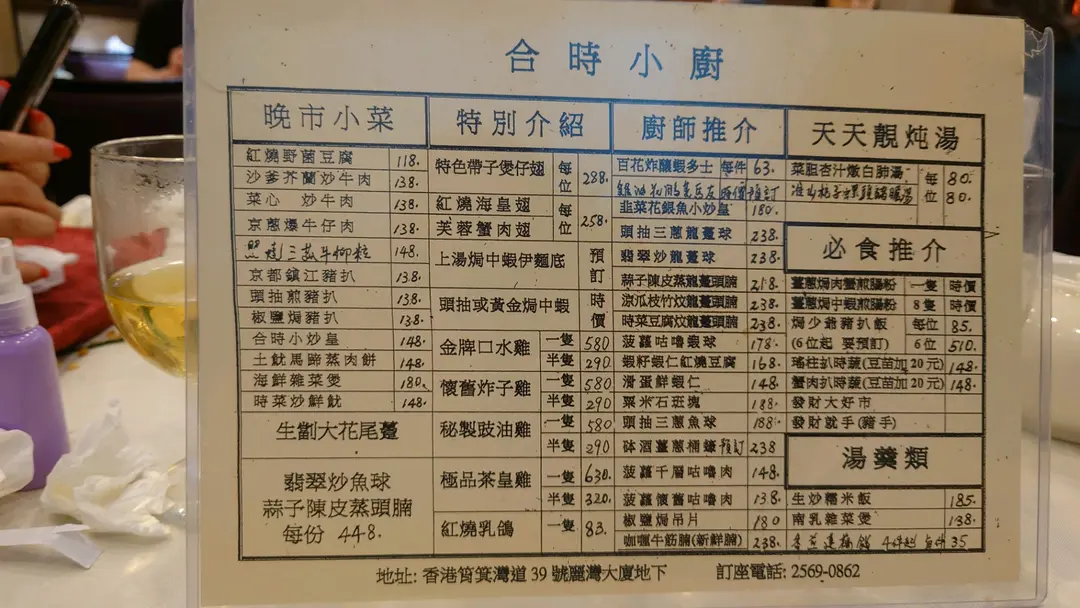 合時小廚
晚市小菜
紅燒野菌豆腐 118.
沙爹芥蘭炒牛肉 138.
菜心 炒牛肉 138.
京蔥爆牛仔肉 138.
148.
京都鎮江豬扒 138.
頭抽煎豬扒 138.
椒鹽焗豬扒 138.
合時小炒皇 148.
土魷馬蹄蒸肉餅 148.
海鮮雜菜煲 180.
時菜炒鮮魷 148.
生劏大花尾躉
翡翠炒魚球
蒜子陳皮蒸頭腩
每份 448.
特別介紹
特色帶子煲仔翅 每位 288.
紅燒海皇翅
芙蓉蟹肉翅 每位 258.
上湯焗中蝦伊麵底
頭抽或黃金焗中蝦
預訂 時價
金牌口水雞 一隻 580
半隻 290
懷舊炸子雞 一隻 580
半隻 290
秘製豉油雞 一隻 580
半隻 290
極品茶皇雞 一隻 630.
半隻 320.
紅燒乳鴿 一隻 83.
廚師推介
百花炸釀蝦多士 每件 63.
預訂
韭菜花銀魚小炒皇 180.
頭抽三蔥龍躉球 238.
翡翠炒龍躉球 238.
蒜子陳皮蒸龍躉頭腩 218.
涼瓜枝竹炆龍躉頭腩 238.
時菜豆腐炆龍躉頭腩 238.
菠蘿咕嚕蝦球 178.
蝦籽蝦仁紅燒豆腐 168.
滑蛋鮮蝦仁 148.
粟米石斑塊 188.
頭抽三蔥魚球 188.
砵酒薑蔥桶蠔 預訂 238
菠蘿千層咕嚕肉 148.
菠蘿懷舊咕嚕肉 138.
椒鹽焗吊片 180
咖喱牛筋腩(新鮮腩) 238.
天天靚炖湯
菜胆杏汁燉白肺湯 每位 80.
80.
必食推介
薑蔥焗肉蟹煎腸粉 一隻 時價
薑蔥焗中蝦煎腸粉 8隻 時價
焗少爺豬扒飯 每位 85.
(6位起 要預訂) 6位 510.
瑤柱扒時蔬(豆苗加 20 元) 148.
蟹肉扒時蔬(豆苗加 20 元) 148.
發財大好市
發財就手(豬手)
湯羹類
生炒糯米飯 185.
南乳雜菜煲 138.
35
地址: 香港筲箕灣道 39 號麗灣大廈地下 訂座電話: 2569-0862